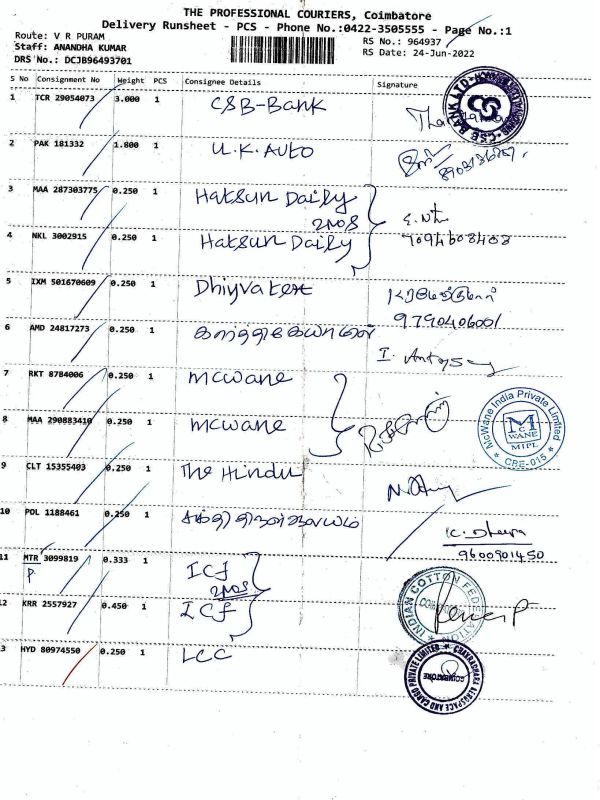 THE PROFESSIONAL COURIERS, Coimbatore
Delivery Runsheet - PCS - Phone No.:0422-3505555 - Page No.:1
Route: V R PURAM
RS No.: 964937
Staff: ANANDHA KUMAR
RS Date: 24-Jun-2022
DRS No.: DCJB96493701
S No Consignment No Weight PCS Consignee Details Signature
1 TCR 29054073 3.000 1 CSB-Bank
CSB BANK LTD
2 PAK 181332 1.800 1 U.K. Auto
3 MAA 287303775 0.250 1 Hatsun Daily
2nos
4 NKL 3002915 0.250 1 Hatsun Daily 7094608408
5 IXM 501670609 0.250 1 Dhiyva
9790406001
6 AMD 24817273 0.250 1
7 RKT 8784006 0.250 1 mcwane
McWane India Private Limited
McWANE
MIPL
CBE-015
8 MAA 290883410 0.250 1 mcwane
9 CLT 15355403 0.250 1 The Hindu
10 POL 1188461 0.250 1
K. Deepa
9600901450
11 MTR 3099819 0.333 1 ICf
P
2nos
12 KRR 2557927 0.450 1 ICf
INDIAN COTTON FEDERATION
COIMBATORE
3 HYD 80974550 0.250 1 LCC
CHAKRADHARA AEROSPACE AND CARGO PRIVATE LIMITED
COIMBATORE